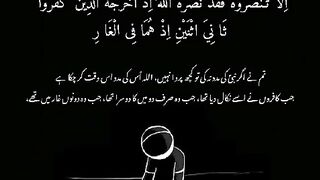 إِلَّا تَنصُرُوهُ فَقَدْ نَصَرَهُ اللَّهُ إِذْ أَخْرَجَهُ الَّذِينَ كَفَرُوا
ثَانِيَ اثْنَيْنِ إِذْ هُمَا فِي الْغَارِ
تم نے اگر نبیؐ کی مدد نہ کی تو کچھ پروا نہیں، اللہ اُس کی مدد اس وقت کر چکا ہے
جب کافروں نے اسے نکال دیا تھا، جب وہ صرف دو میں کا دوسرا تھا، جب وہ دونوں غار میں تھے،